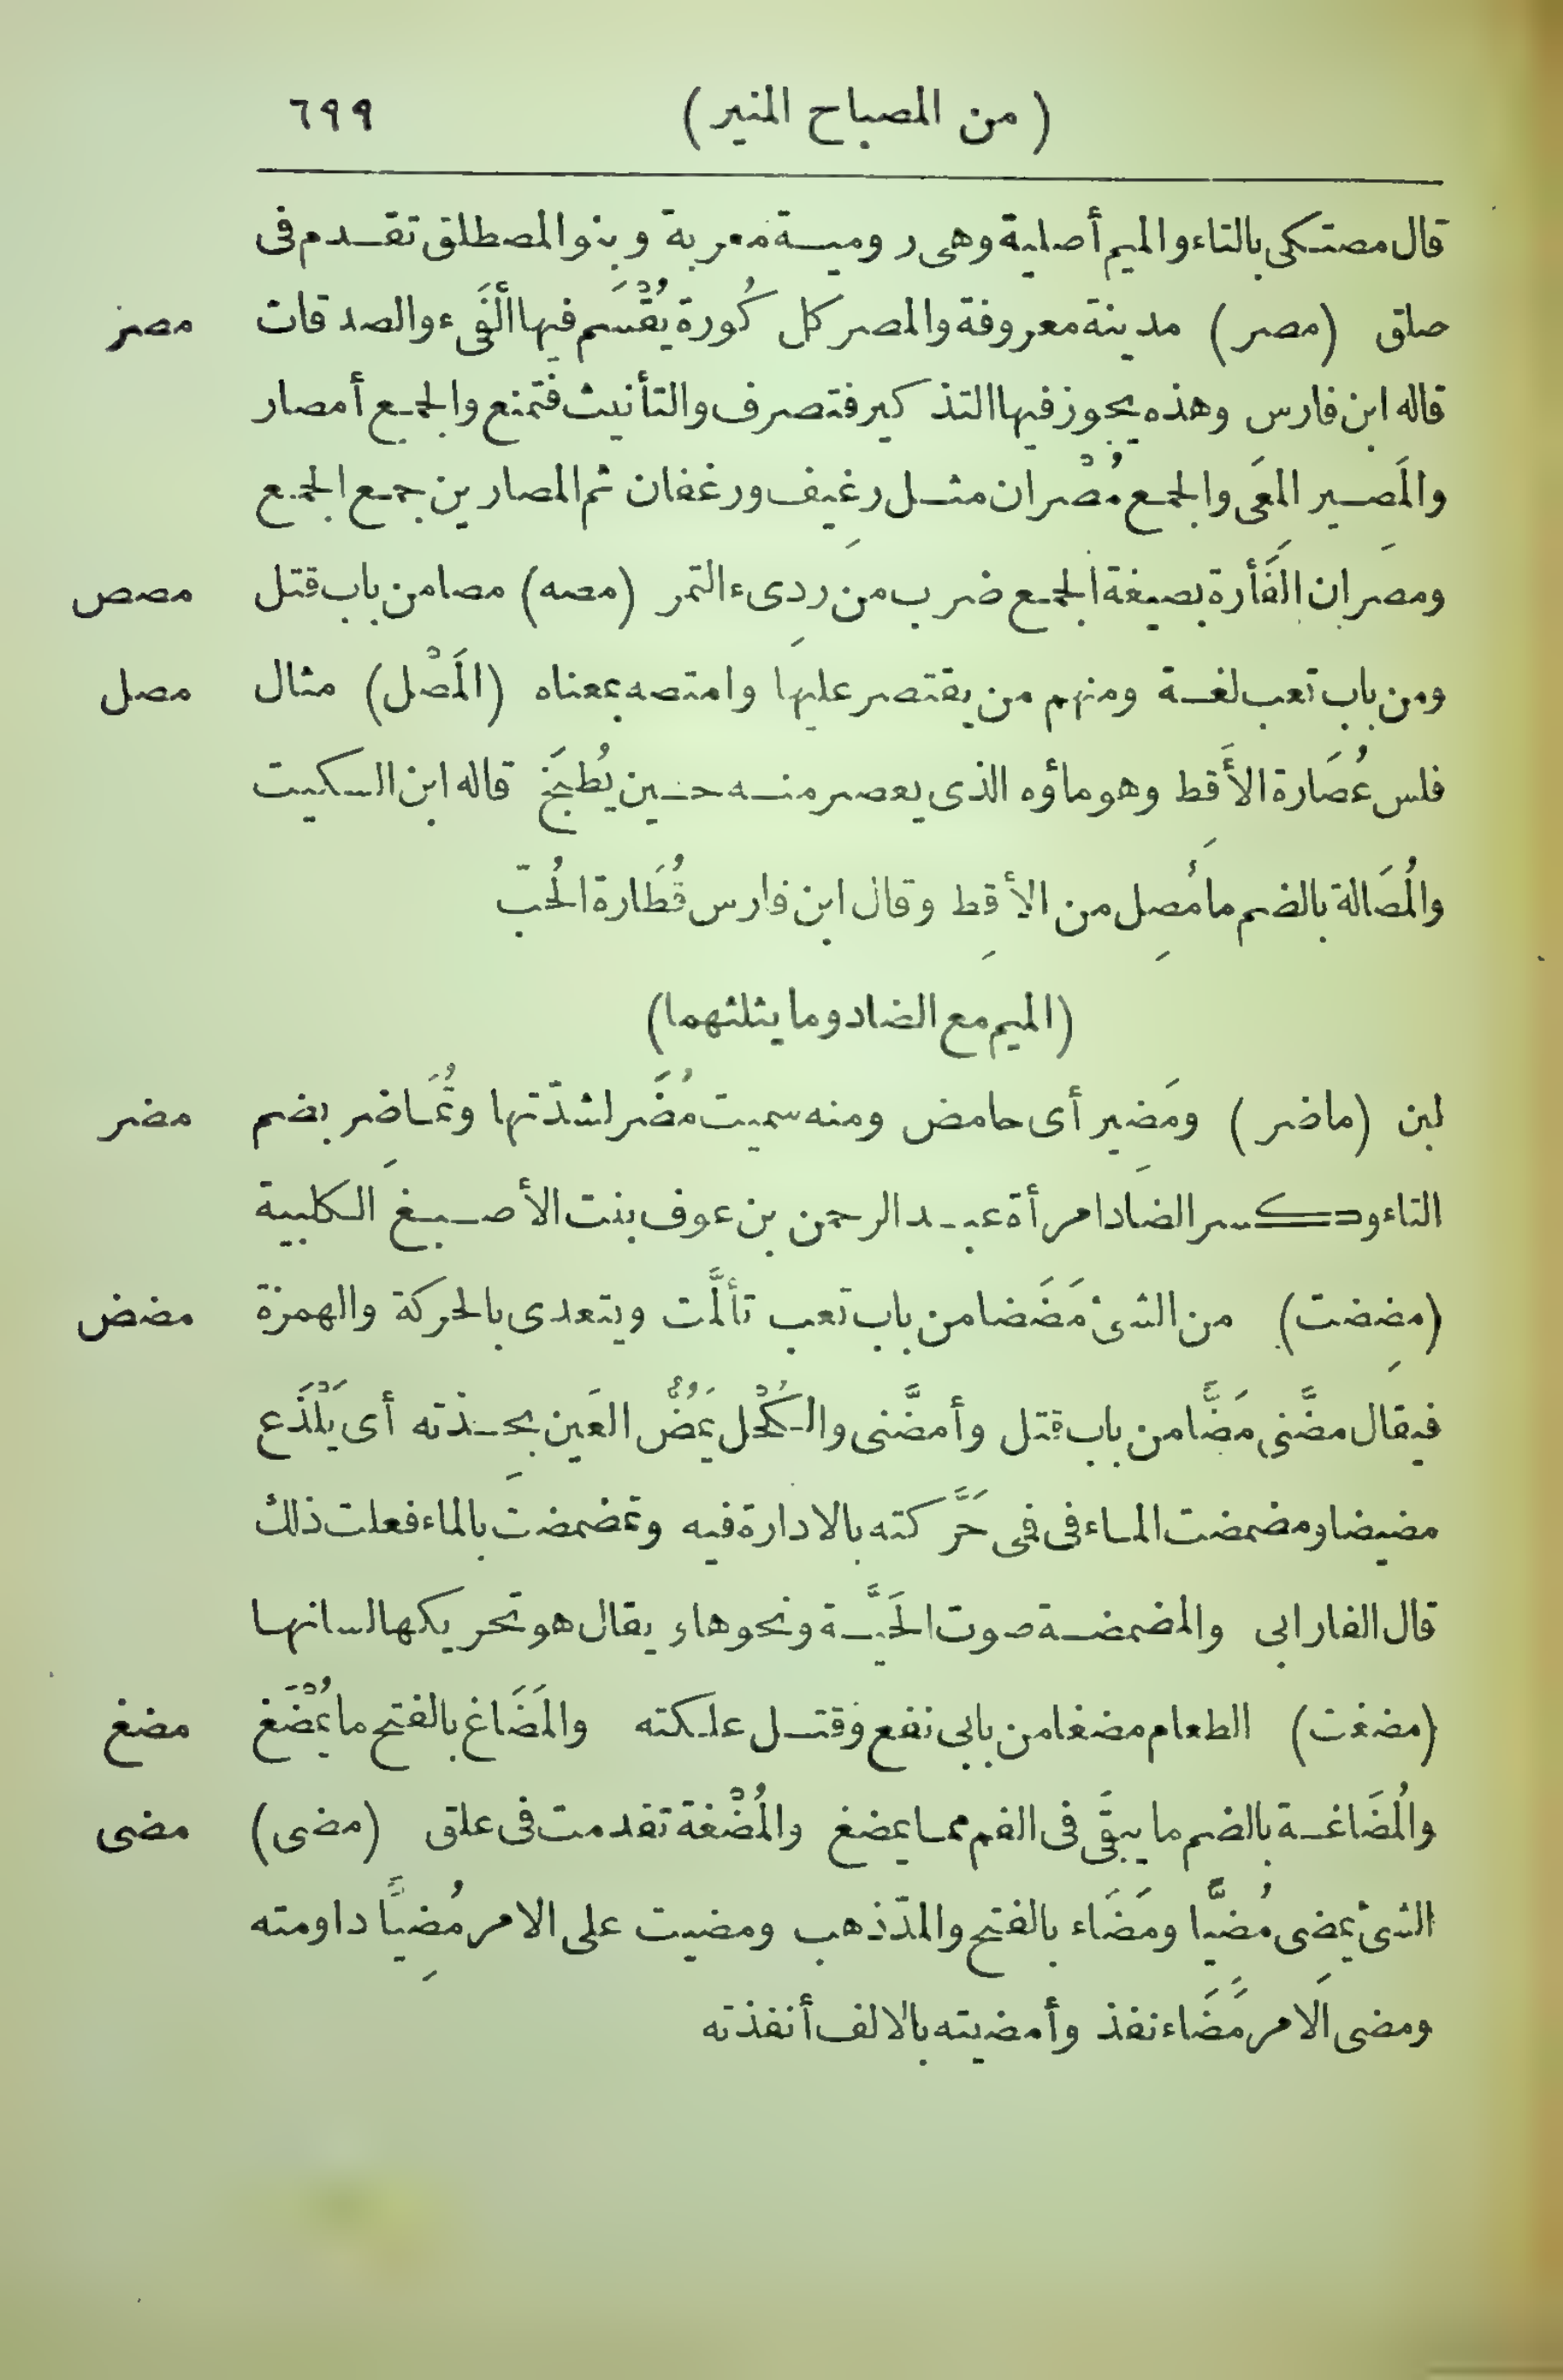 (من المصباح المنير) ٦٩٩
قال مصتكى بالتاء والميم أصلية وهى رومية معربة وبنو المصطلق تقدم فى
صلق (مصر) مدينة معروفة والمصر كل كُورة يُقْسَم فيها الْفَىء والصدقات مصر
قاله ابن فارس وهذه يجوز فيها التذكير فتصرف والتأنيث فتمنع والجمع أمصار
والمَصِير المِعَى والجمع مُصْران مثل رغيف ورغفان ثم المصارين جمع الجمع
ومصران الفَأرة بصيغة الجمع ضرب من ردِىء التمر (مصه) مصا من باب قتل مصص
ومن باب تعب لغة ومنهم من يقتصر عليها وامتصه بمعناه (المَصْل) مثال مصل
فلس عُصَارة الأَقِط وهو ماؤه الذى يعصر منه حين يُطبَخ قاله ابن السكيت
والمُصَالة بالضم ما مُصِل من الأقِط وقال ابن فارس قُطَارة الحُبّ
(الميم مع الضاد وما يثلثهما)
لبن (ماضر) ومَضِير أى حامض ومنه سميت مُضَر لشدّتها وتُمَاضِر بضم مضر
التاء وكسر الضاد امرأة عبد الرحمن بن عوف بنت الأصبغ الكلبية
(مضِضت) من الشئ مَضَضا من باب تعب تألَّمت ويتعدى بالحركة والهمزة مضض
فيقال مضَّنى مَضًّا من باب قتل وأمضَّنى والكُحْل يَمُضُّ العَين بِحِدّته أى يَلْذَع
مضيضا ومضمضت الماء فى فمى حَرَّكته بالادارة فيه وتمضمضت بالماء فعلت ذلك
قال الفارابى والمضمضة صوت الحَيَّة ونحوها ويقال هو تحريكها لسانها
(مضغت) الطعام مضغا من بابى نفع وقتل علكته والمَضَاغ بالفتح ما يُمْضَغ مضغ
والمُضَاغة بالضم ما يبقَى فى الفم مما يمضغ والمُضْغة تقدمت فى علق (مضى) مضى
الشئ يمضِى مُضيًّا ومَضَاء بالفتح والمدّ ذهب ومضيت على الامر مُضِيًّا داومته
ومضى الامر مَضَاء نفذ وأمضيته بالالف أنفذته